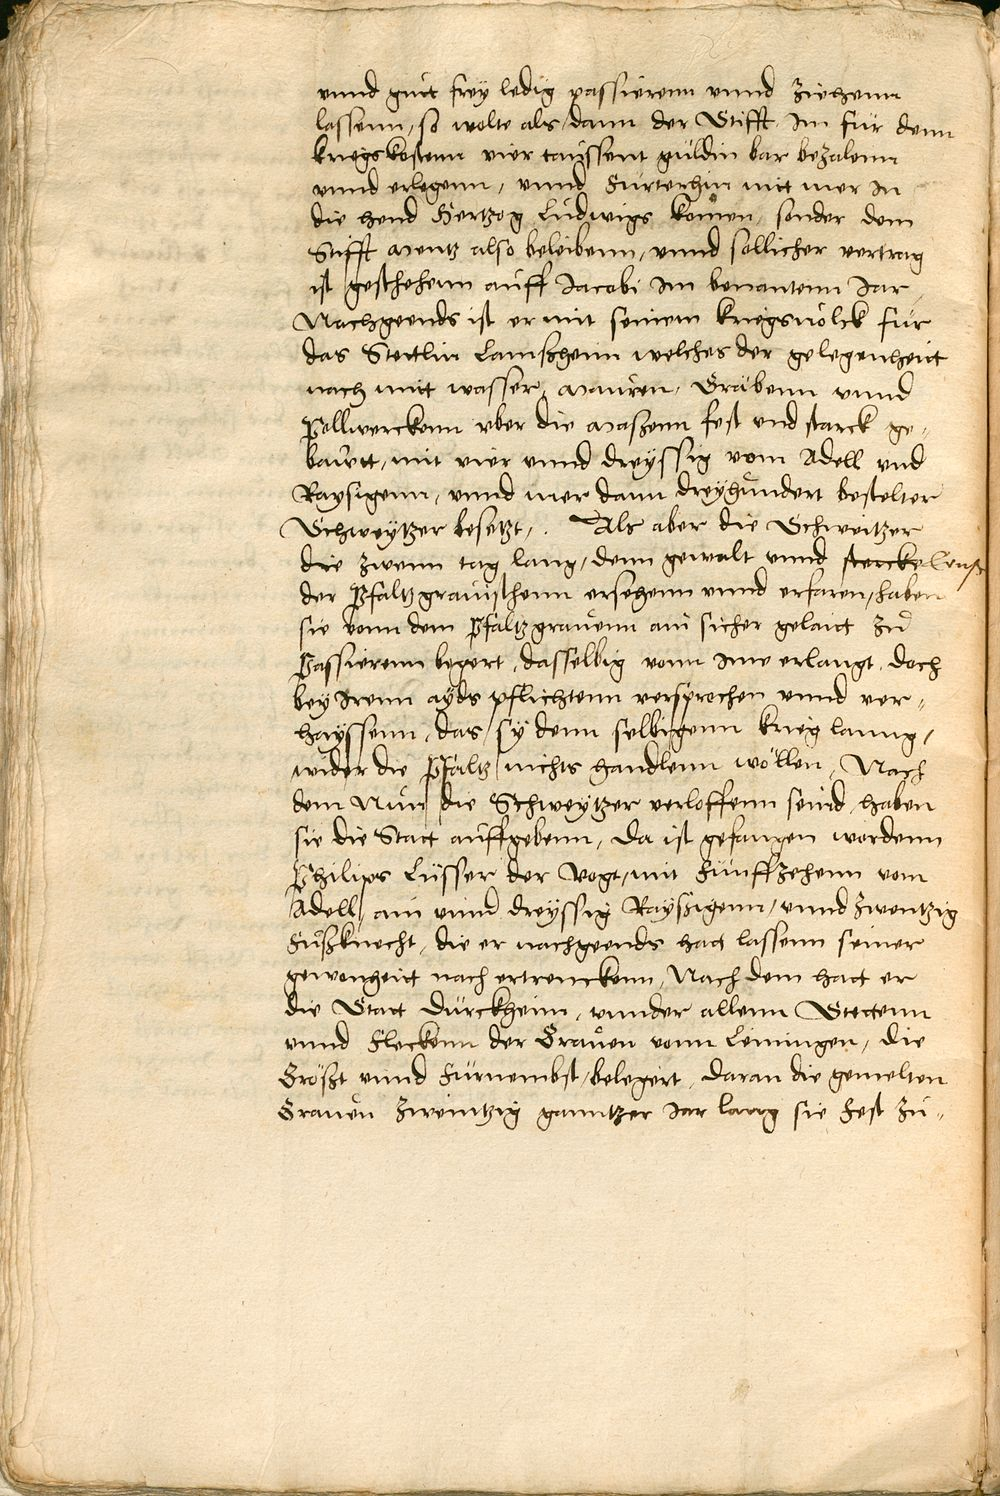 vnnd gutt frey ledig passierenn vnnd ziehenn
lassenn, so wolte als dann der Stifft Im für denn
kriegs kostenn vier taussent guldin bar bezalenn
vnnd erlegenn, vnnd Fürterhin nitt mer In
die hend Hertzog Ludwigs komen, sonder dem
Stifft Mentz also beleibenn, vnnd sollicher vertrag
ist geschehenn auff Jacobi Im benantenn Jar,
Nachgeends ist er mit seinem kriegsuolck für
das Stettlin Lamßheim welches der gelegenheitt
nach mitt wasser, Mauren, Gräbenn vnnd
Pollwerckenn vber die Maßenn fest vnd starck ge-
bauett, mit vier vnnd dreyssig vom Adell vnd
Raysigenn, vnnd mer dann dreyhundert bestelter
Schweytzer besetzt,. Als aber die Schweitzer
die zwenn tag lang, denn gewalt vnnd stercke
der Pfaltzgrauischenn ersehenn vnnd erfaren, haben
sie vonn dem Pfaltzgrauenn ain sicher gelaitt zu
Passierenn begert, dasselbig vonn Ime erlangt, doch
bey Irenn ayds pflichtenn versprochen vnnd ver-
hayssenn, das sy denn selbigenn krieg lanng,
wider die Pfaltz nichts handlenn wöllen, Nach
dem Nun die Schweytzer verloffenn seind, haben
sie die Statt auffgebenn, Da ist gefangen wordenn
Philips Lüsser der Vogt, mit Fünffzehenn vom
Adell, ain vnnd dreyssig Rayßigenn, vnnd zwentzig
Fußknecht, die er nachgeends hatt lassenn seiner
gewonheitt nach ertrenckenn, Nach dem hatt er
die Statt Dürckheim, vunder allenn Stettenn
vnnd Fleckenn der Grauen vonn Leiningen, die
Größt vnnd Fürnembst, belegert, daran die gemelten
Grauen zweintzig ganntzer Jar lang sie Fest zu-